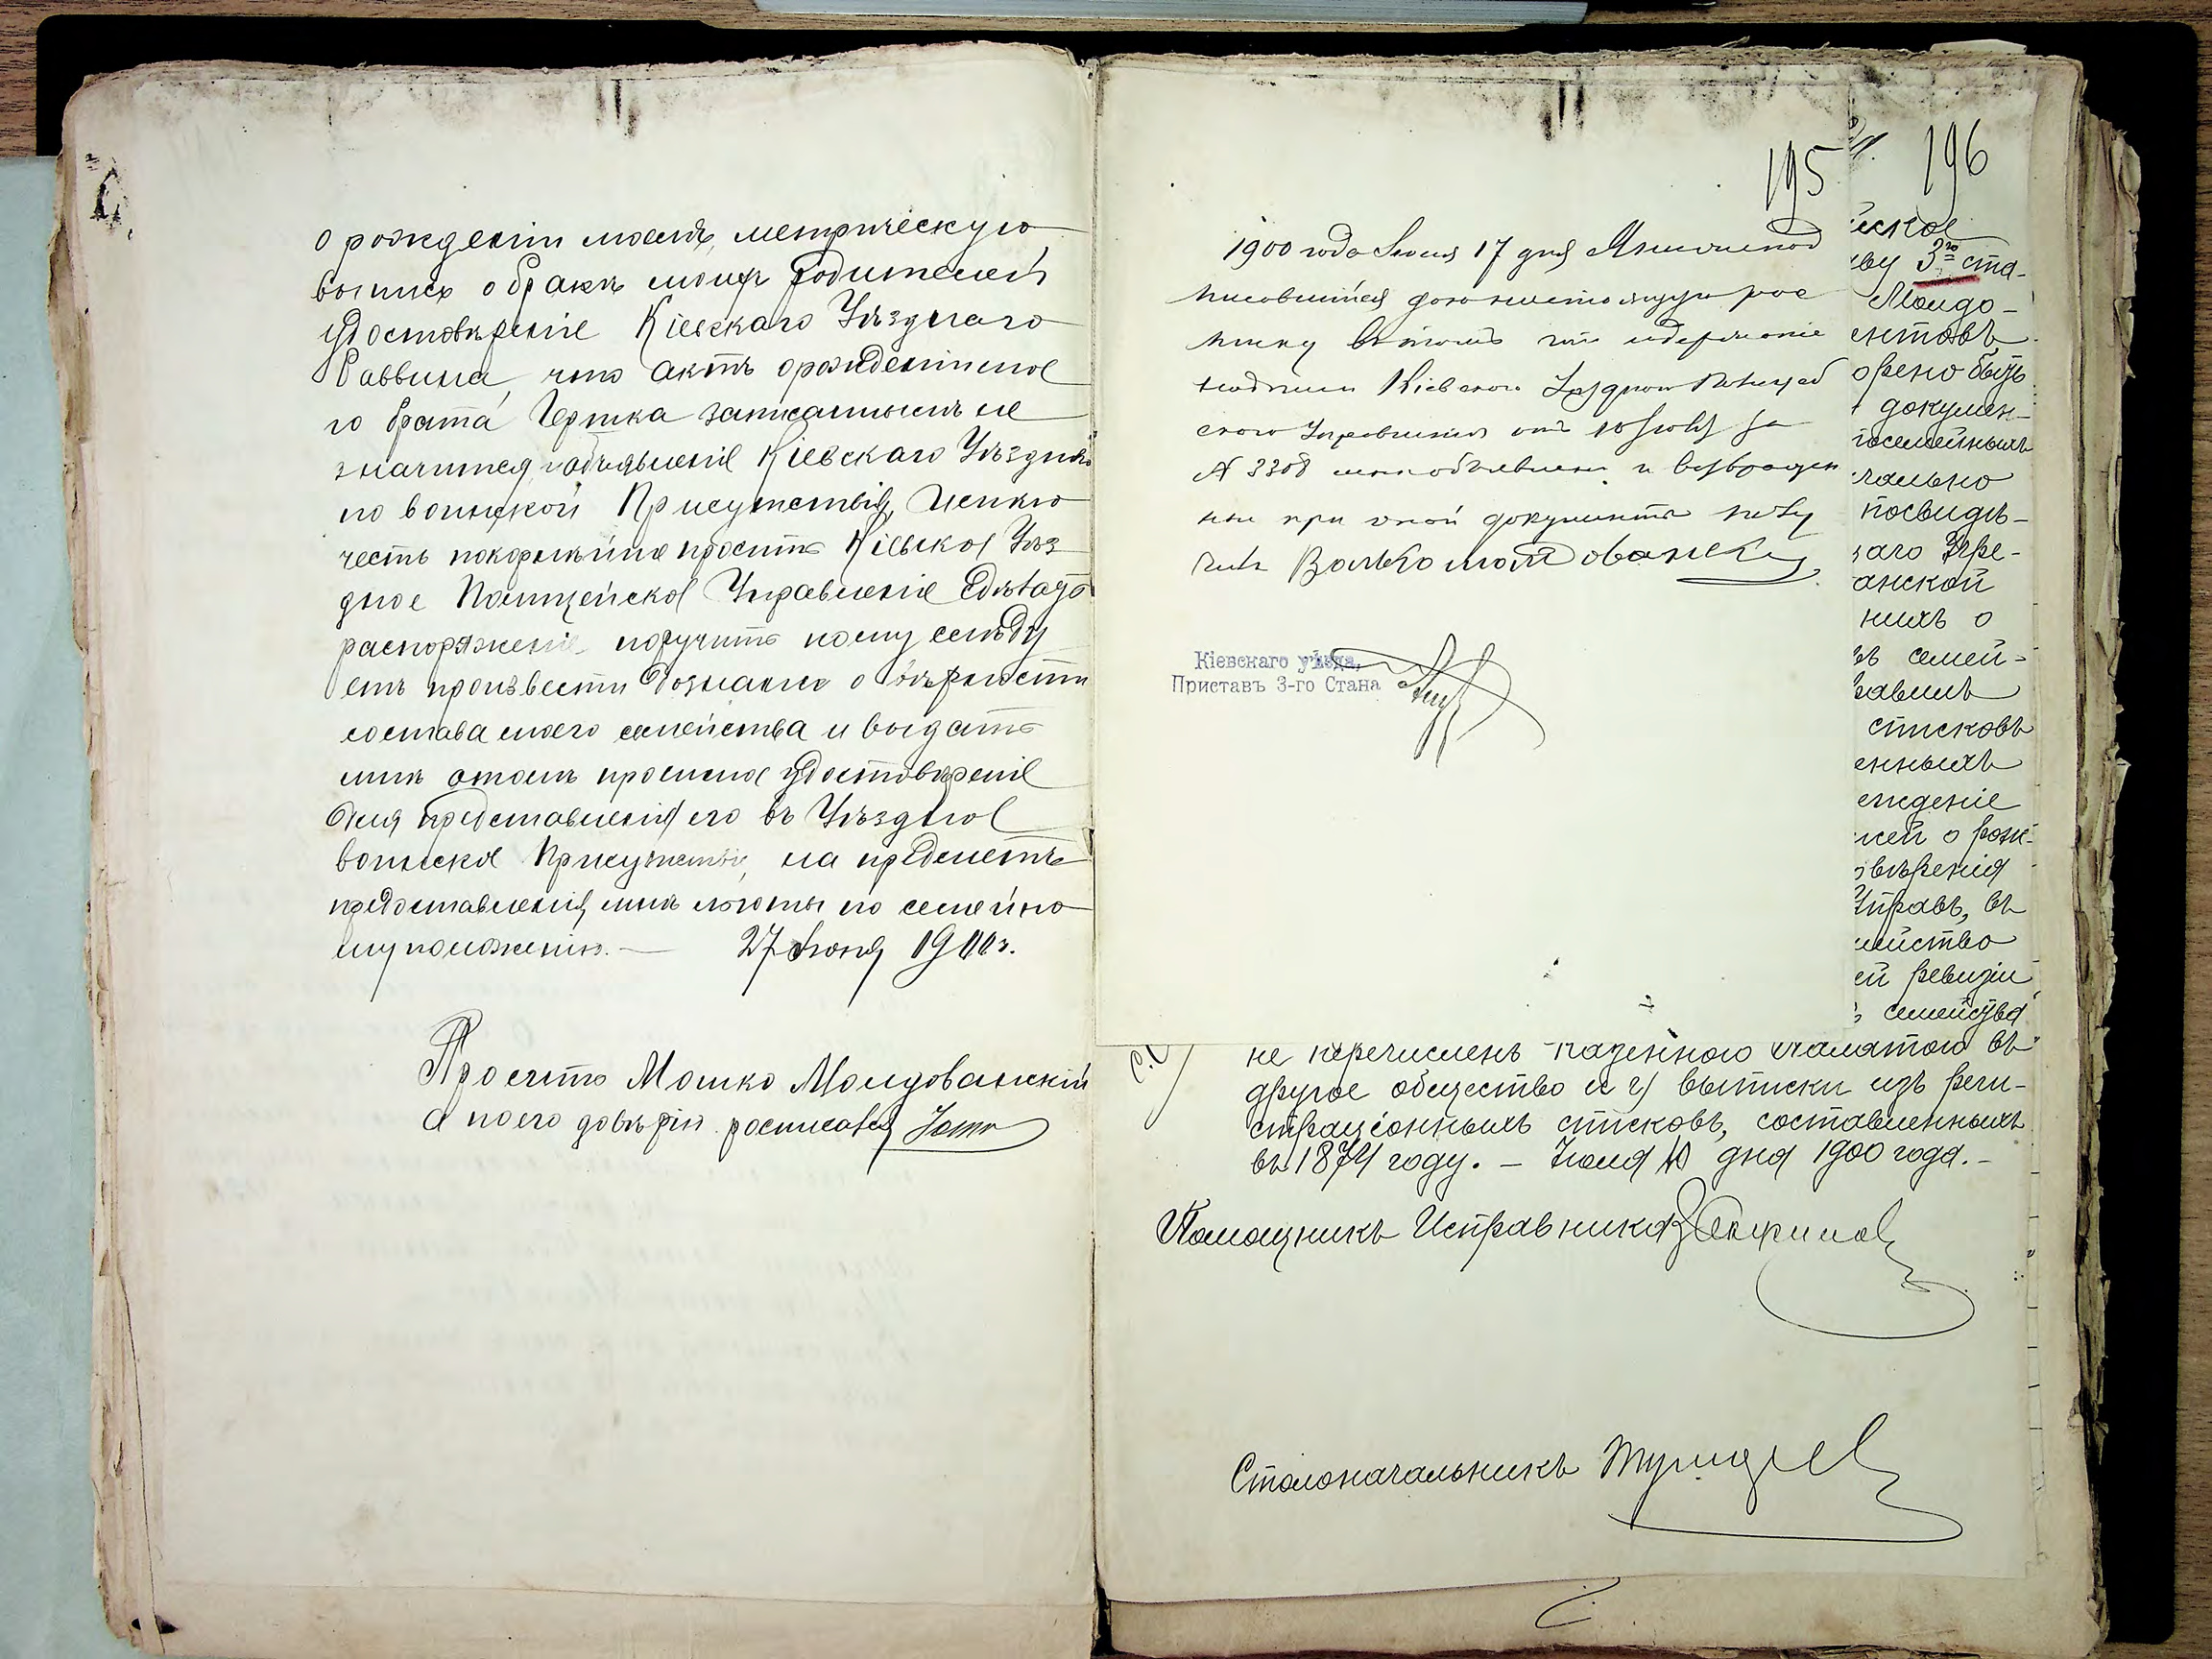 о рожденіи моемъ, метрическую
выпись о бракѣ моихъ родителей
удостовѣреніе Кіевскаго Уѣзднаго
Раввина, что актъ о рожденіи мое
го брата Гершка записаннымъ не
значится, и объявленіе Кіевскаго Уѣзднаго
по воинской Присутствія, Имѣю
честь покорнѣйше просить Кіевское Уѣз
дное Полицейское Управленіе Сдѣлать
распоряженіе поручить кому слѣду
етъ произвести дознаніе о вѣрности
состава моего семейства и выдать
мнѣ о томъ просимое удостовѣреніе
для представленія его въ Уѣздное
воинское Присутствіе, на предметъ
предоставленія мнѣ льготы по семейно
му положенію. — 27 Іюня 1900 г.
Проситъ Мошко Молдованскій
а по его довѣрію росписался
195
1900 года Іюля 17 дня Я нижепод
писавшійся даю настоящую рос
писку въ томъ что содержаніе
надписи Кіевскаго Уѣзднаго Полицей
скаго Управленія отъ 10 Іюля за
№ 3308 мнѣ объявлено и возвращен
ные при оной документы полу
чилъ Волько Молдованскій
Кіевскаго уѣзда,
Приставъ 3-го Стана
196
йское
ву 3го ста-
Молдо-
ентовъ
орено быть
докумен-
посемейныхъ
чально
посвидѣ-
наго Упра-
анской
нихъ о
семей-
списковъ
енныхъ
ождение
лей о рож-
овѣренія
Управъ, въ
мейство
ей ревизіи
семейства
не перечисленъ Казенною Палатою въ
другое общество и г) выписки изъ реги-
страціонныхъ списковъ, составленныхъ
въ 1874 году. — Іюля 10 дня 1900 года. —
Помощникъ Исправника
Столоначальникъ